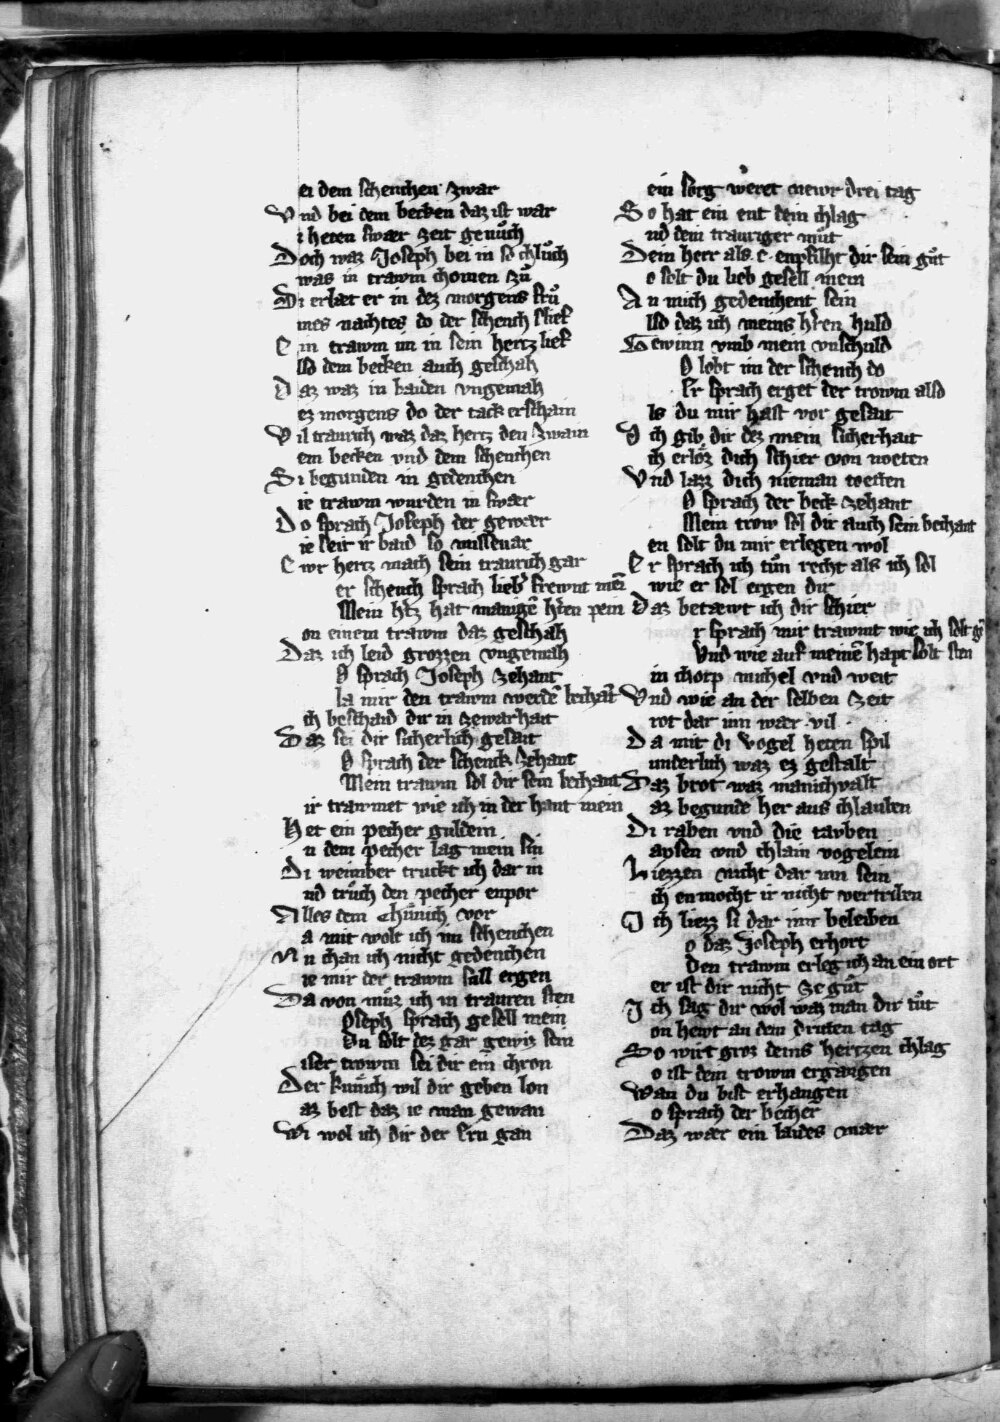 ei dem schenchen zwar
Vnd bei dem becken daz ist war
i heten swær zeit genůch
Doch waz Joseph bei in so chlůch
was in trawm chomen zů
Di erlæt er in dez morgens frů
ines nachtes do der schench slief
Ein trawm im in sein hertz lief
lso dem becken auch geschah
Daz waz in baiden vngemah
ez morgens do der tack erschain
Vil traurich waz daz hertz den zwain
em becken vnd dem schenchen
Si begunden in gedenchen
ie trawm wurden in swær
Do sprach Joseph der gewær
ie seit ir baid so missevar
Ewr hertz mach sein traurich gar
er schench sprach lieb' frewnt mei
Mein htz hat manigē h'ren pein
on einem trawm daz geschah
Daz ich leid grozzen vngemah
O sprach Joseph zehant
la mir den trawm werdē bechāt
ch beschaid dir in zewarhait
Daz sei dir sicherlich gesait
O sprach der schenck zehant
Mein trawm sol dir sein bechant
ir trawmet wie ich in der hant mein
Het ein pecher guldein
n dem pecher lag mein sin
Di weinber truckt ich dar in
nd trůch den pecher enpor
Alles dem chünich vor
a mit wolt ich im schenchen
Nu chan ich nicht gedenchen
ie mir der trawm sull ergen
Da von můz ich in trauren sten
Oseph sprach gesell mein
Du solt dez gar gewiz sein
iser trowm sei dir ein chron
Der künich wil dir geben lon
az best daz ie man gewan
Wi wol ich dir der frü gan
ein sorg weret newr drei tag
So hat ein ent dein chlag
nd dein trauriger můt
Dein herr als e enpfilht dir sein gůt
o solt du lieb gesell mein
An mich gedenchent sein
lso daz ich meins h'ren huld
Gewinn vmb mein vnschuld
O lobt im der schench do
Er sprach erget der trowm also
ls du mir hast vor gesait
O ich gib dir dez mein sicherhait
ch erlöz dich schier von noeten
Vnd lazz dich nieman toetten
O sprach der beck zehant
Mein trow sol dir auch sein bechant
en solt du mir erlegen wol
Er sprach ich tůn recht als ich sol
wie er sol ergen dir
Daz betæwt ich dir schier
r sprach mir trawmt wie ich solt gē
Vnd wie auf meinē hapt solt sten
in chorp michel vnd weit
Vnd wie an der selben zeit
rot dar inn wær vil
Da mit di vogel heten spil
underlich waz ez gestalt
Daz brot waz manichvalt
az begunde her aus chlauben
Di raben vnd die tauben
aysen vnd chlain vogelein
Liezzen nicht dar inn sein
ch enmocht ir nicht vertriben
Ich liezz si dar inn beleiben
o daz Joseph erhort
Den trawm erleg ich an ein ort
er ist dir nicht ze gůt
Ich sag dir wol waz man dir tůt
on hewt an dem dritten tag
So wirt groz deins hertzen chlag
o ist dem trowm ergangen
Wan du bist erhangen
o sprach der becher
Daz wær ein laides mær